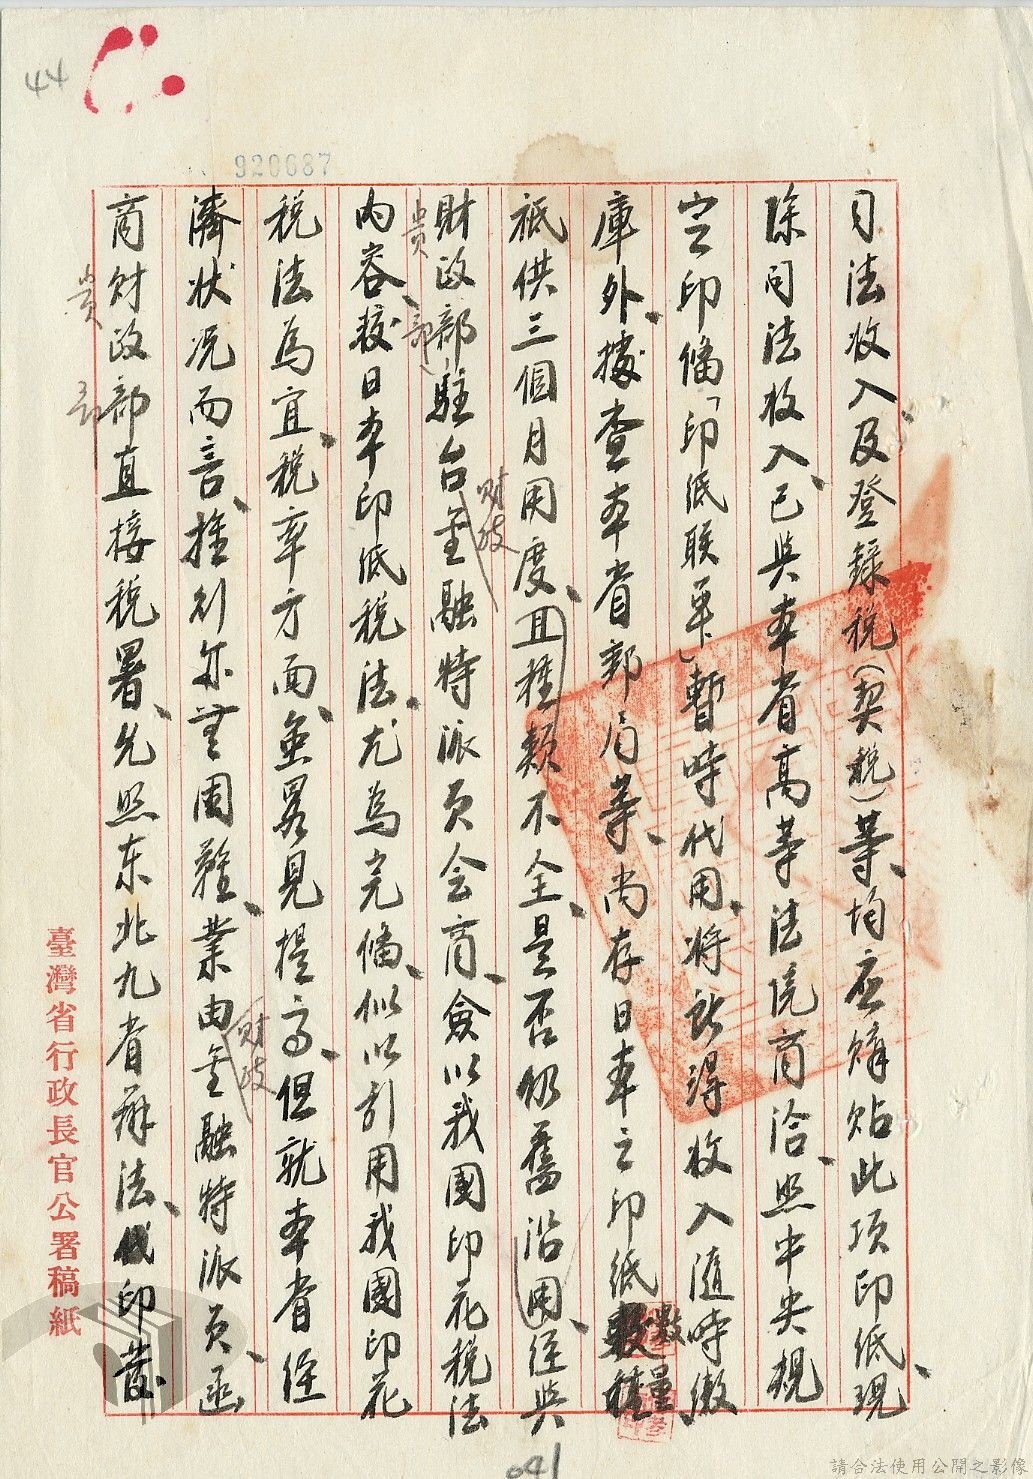 44
920687
司法收入及登錄稅(契稅)等、均应購貼此項印紙、現
除司法收入、已與本省高等法院商洽、照中央規
定印備「印紙联单」暫時代用、将所得收入隨時繳
庫外、據查本省郵局等、尚存日本之印紙数量
祇供三個月用度、且種類不全、是否仍舊沿用、経與
財政部駐台金融特派員会商、僉以我國印花税法
貴部
財政
内容較日本印紙税法、尤為完備、似以引用我國印花
税法為宜、税率方面、虽畧見提高、但就本省経
濟状况而言、推行亦無困難、業由金融特派員、函
財政
商財政部直接税署、允照东北九省辦法、代印發
貴部
臺灣省行政長官公署稿紙
041
請合法使用公開之影像